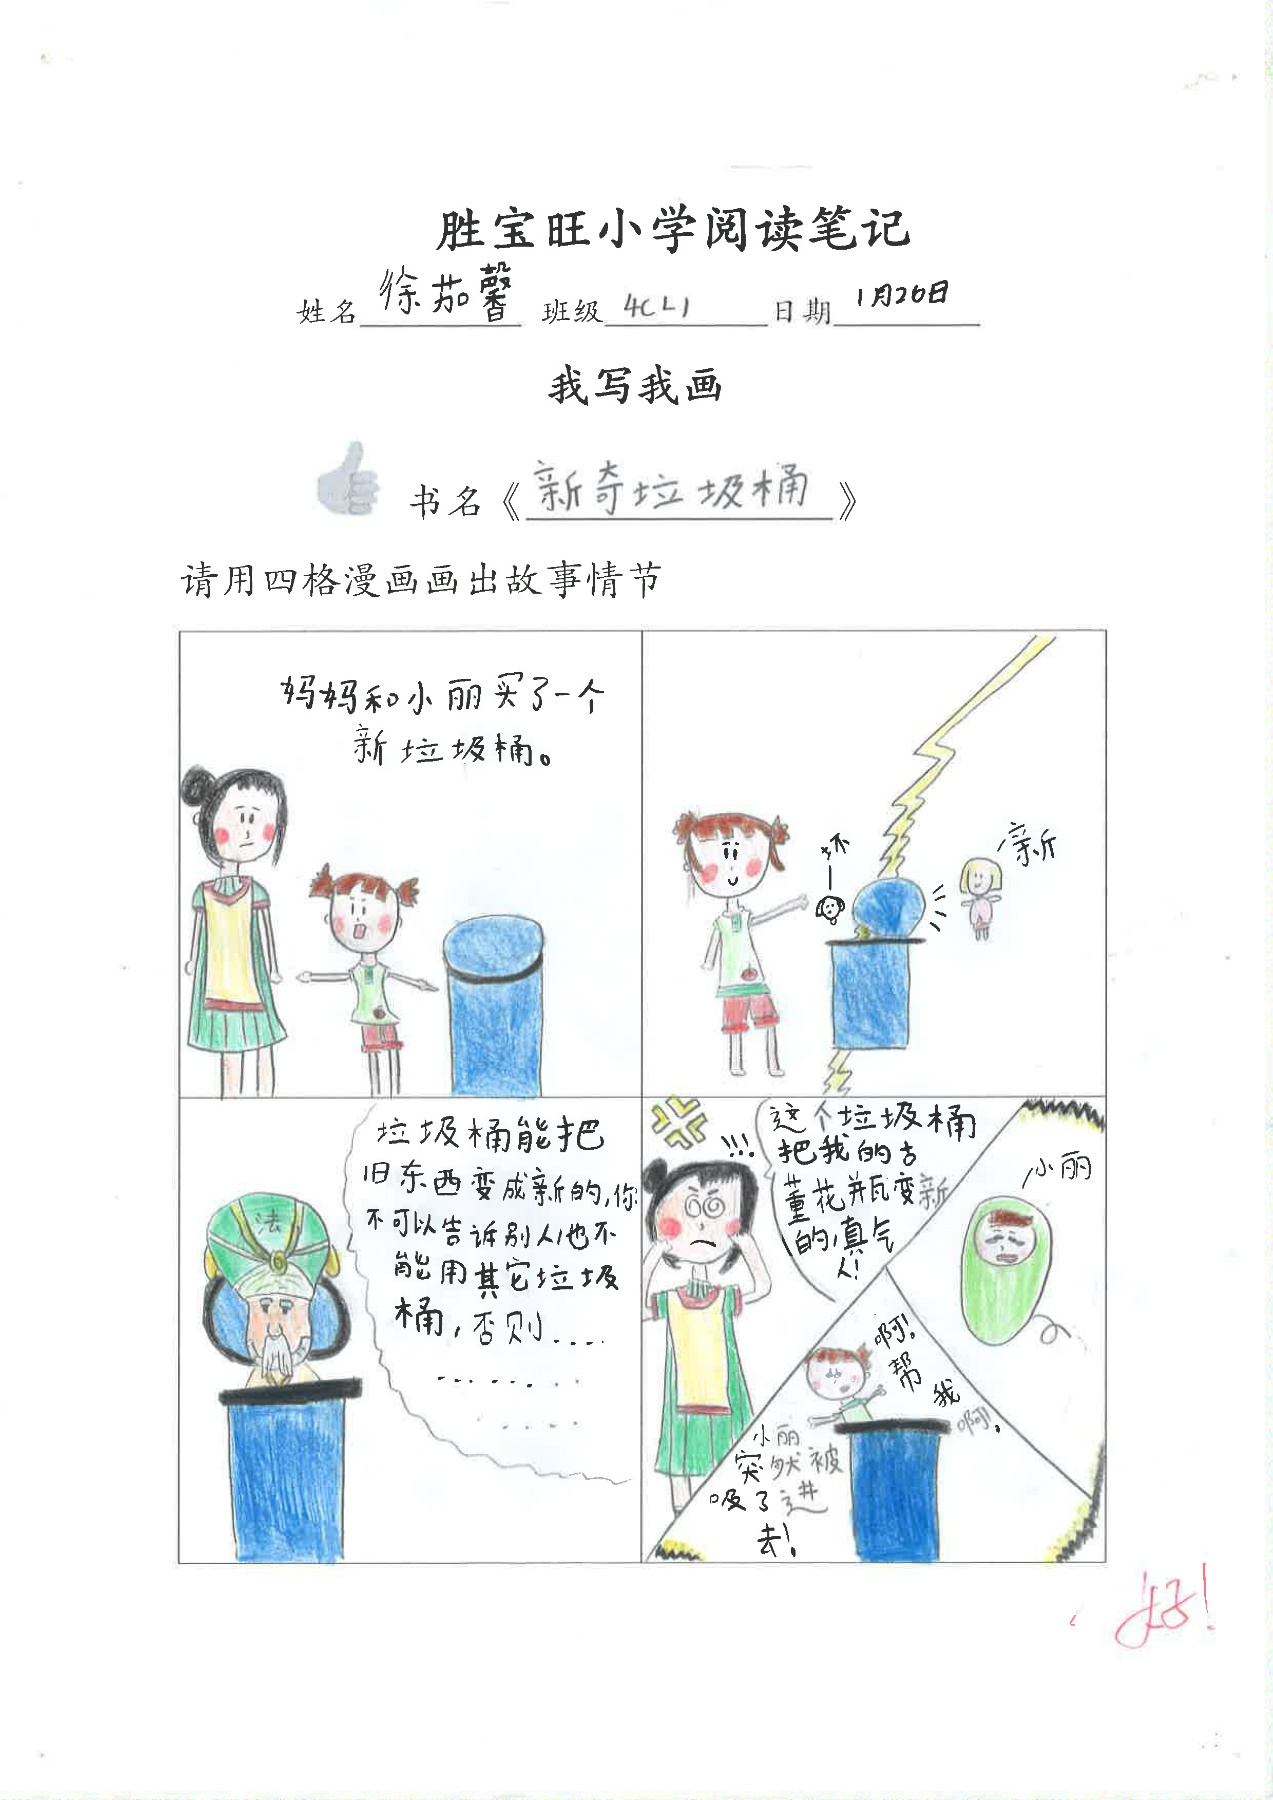 胜宝旺小学阅读笔记
姓名 徐茄馨 班级 4CL1 日期 1月26日
我写我画
书名《新奇垃圾桶》
请用四格漫画画出故事情节
妈妈和小丽买了一个
新垃圾桶。
坏
新
垃圾桶能把
旧东西变成新的,你
不可以告诉别人也不
能用其它垃圾
桶,否则....
........
....
法
!!!
这个垃圾桶
把我的古
董花瓶变新
的,真气
人!
小丽
啊!
帮
我
啊!
小丽
突然被
吸了进
去!
好!